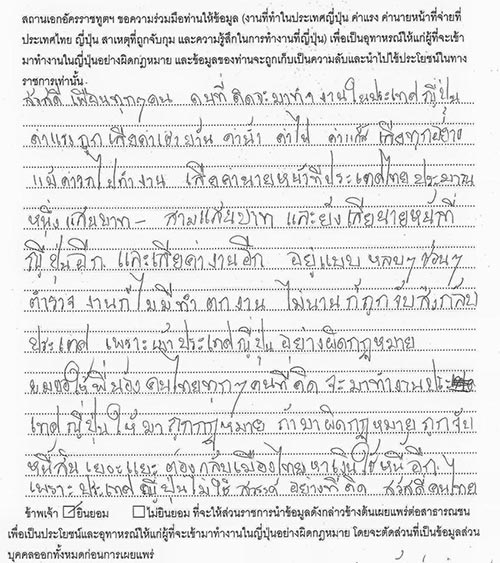 สถานเอกอัครราชทูตฯ ขอความร่วมมือท่านให้ข้อมูล (งานที่ทำในประเทศญี่ปุ่น ค่าแรง ค่านายหน้าที่จ่ายที่
ประเทศไทย ญี่ปุ่น สาเหตุที่ถูกจับกุม และความรู้สึกในการทำงานที่ญี่ปุ่น) เพื่อเป็นอุทาหรณ์ให้แก่ผู้ที่จะเข้า
มาทำงานในญี่ปุ่นอย่างผิดกฎหมาย และข้อมูลของท่านจะถูกเก็บเป็นความลับและนำไปใช้ประโยชน์ในทาง
ราชการเท่านั้น
สวัสดี เพื่อนทุกๆคน คนที่คิดจะมาทำงานในประเทศญี่ปุ่น
ค่าแรงถูก เสียค่าเช่าบ้าน ค่าน้ำ ค่าไฟ ค่าแก๊ส เสียทุกอย่าง
แม้ค่ารถไปทำงาน เสียค่านายหน้าที่ประเทศไทย ประมาณ
หนึ่งแสนบาท - สามแสนบาท และยังเสียนายหน้าที่
ญี่ปุ่นอีก และเสียค่างานอีก อยู่แบบ หลบๆ ซ่อนๆ
ตำรวจ งานก็ไม่มีทำ ตกงาน ไม่นานก็ถูกจับส่งกลับ
ประเทศ เพราะเข้าประเทศญี่ปุ่น อย่างผิดกฎหมาย
ผมขอให้พี่น้องคนไทยทุกๆคนที่คิด จะมาทำงานประ
เทศญี่ปุ่นให้มาถูกกฎหมาย ถ้ามาผิดกฎหมายถูกจับ
หนี้สินเยอะแยะ ต้องกลับเมืองไทยหาเงินใช้หนี้อีก
เพราะประเทศญี่ปุ่นไม่ใช่ สวรรค์ อย่างที่คิด สวัสดีคนไทย
ข้าพเจ้า ☑ยินยอม ☐ไม่ยินยอม ที่จะให้ส่วนราชการนำข้อมูลดังกล่าวข้างต้นเผยแพร่ต่อสาธารณชน
เพื่อเป็นประโยชน์และอุทาหรณ์ให้แก่ผู้ที่จะเข้ามาทำงานในญี่ปุ่นอย่างผิดกฎหมาย โดยจะตัดส่วนที่เป็นข้อมูลส่วน
บุคคลออกทั้งหมดก่อนการเผยแพร่